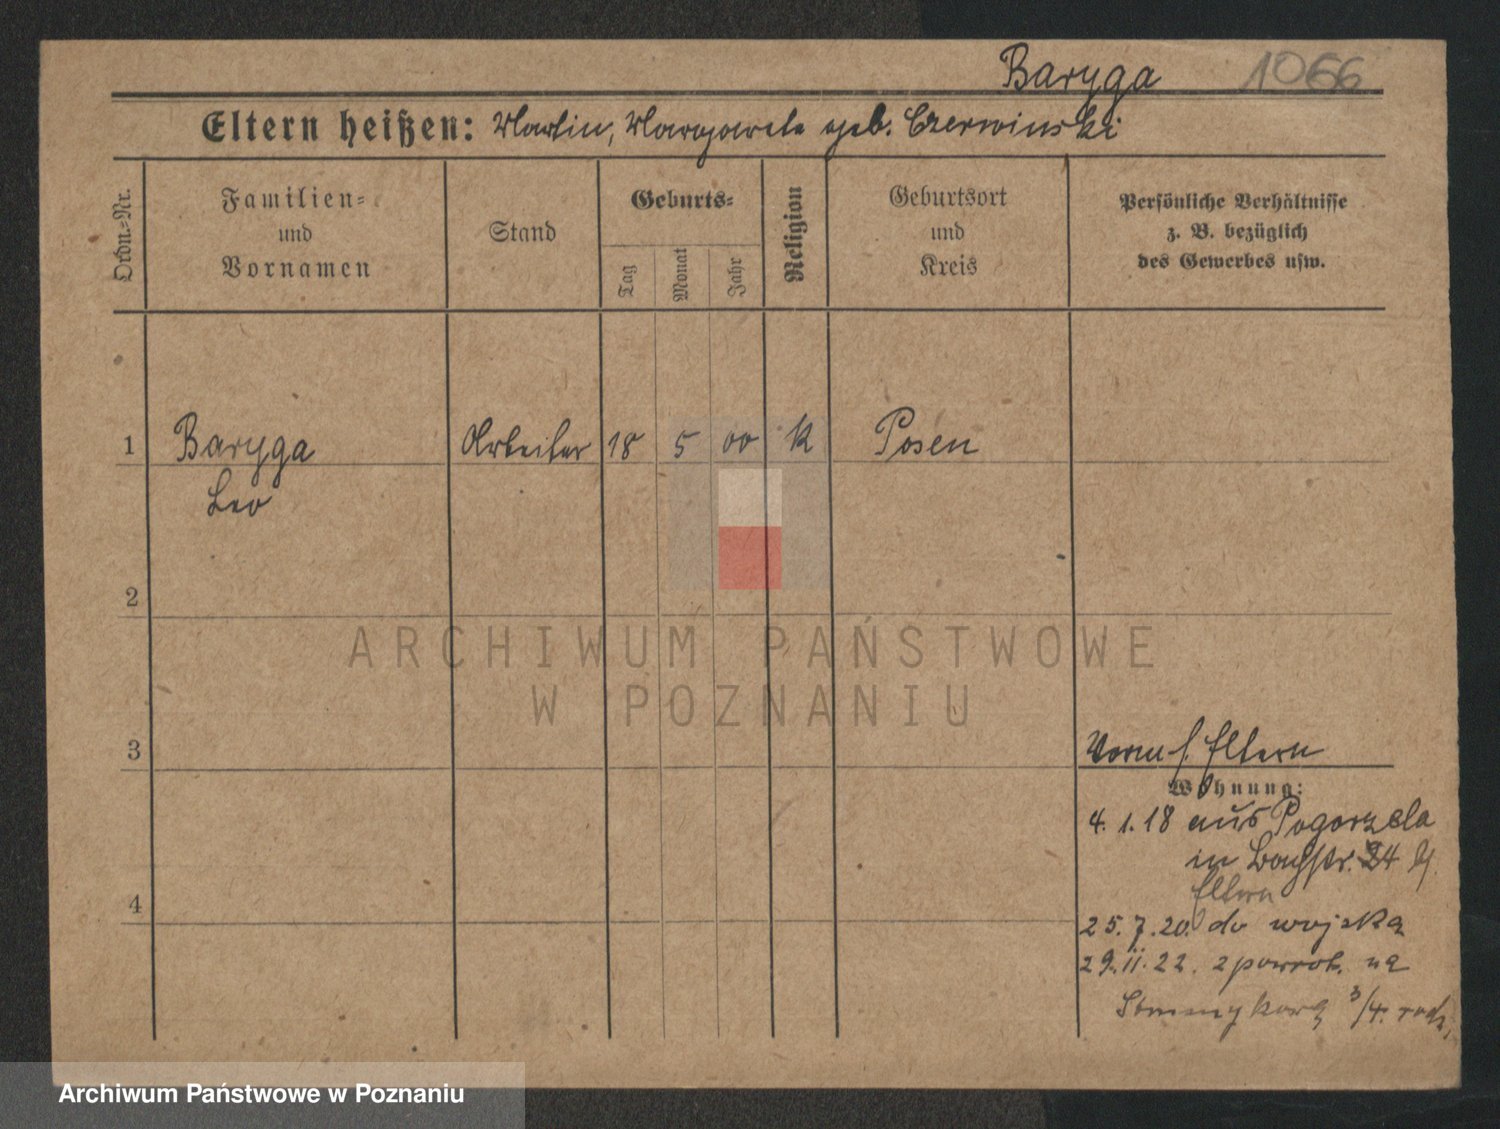 Baryga 1066
Eltern heißen: Martin, Margarete geb. Czerwinski
Ordn.-Nr.
Familien- und Vornamen
Stand
Geburts-
Tag
Monat
Jahr
Religion
Geburtsort und Kreis
Persönliche Verhältnisse
z. B. bezüglich
des Gewerbes usw.
1 Baryga Arbeiter 18 5 00 K Posen
Leo
2
ARCHIWUM PAŃSTWOWE
W POZNANIU
3
Vorm f. Eltern
Wohnung:
4. 1. 18 aus Pogorzela
in Bachstr. 24
Eltern
4
25. 7. 20. do wojska
29. 11. 22. zpowrot. na
3/4. rodz.
Archiwum Państwowe w Poznaniu